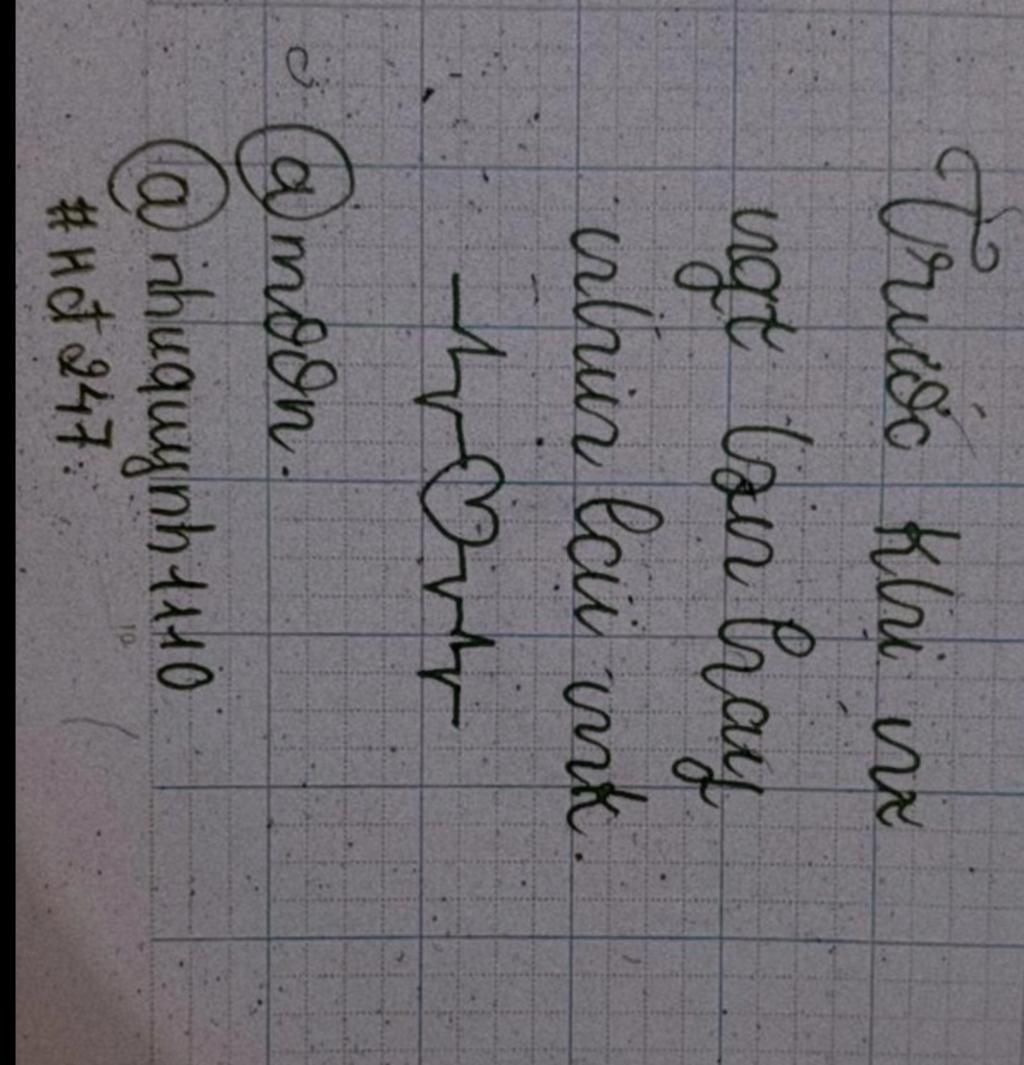 Trước khi nx
ngt bạn hãy
nhìn lại mk.
@mơơn.
@nhuquynh1110
#HĐ247.